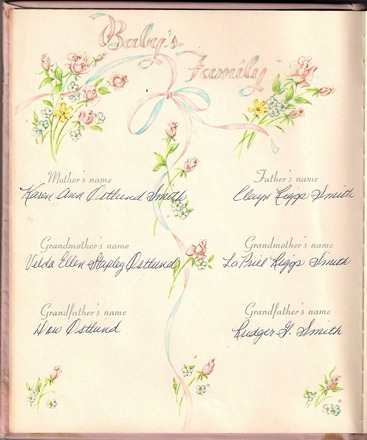 Baby's
Family
Mother's name Father's name
Karen Ann Ostlund Smith Riggs Smith
Grandmother's name Grandmother's name
Velda Ellen Stapley Ostlund LaPriel Riggs Smith
Grandfather's name Grandfather's name
Ostlund Rudger G. Smith